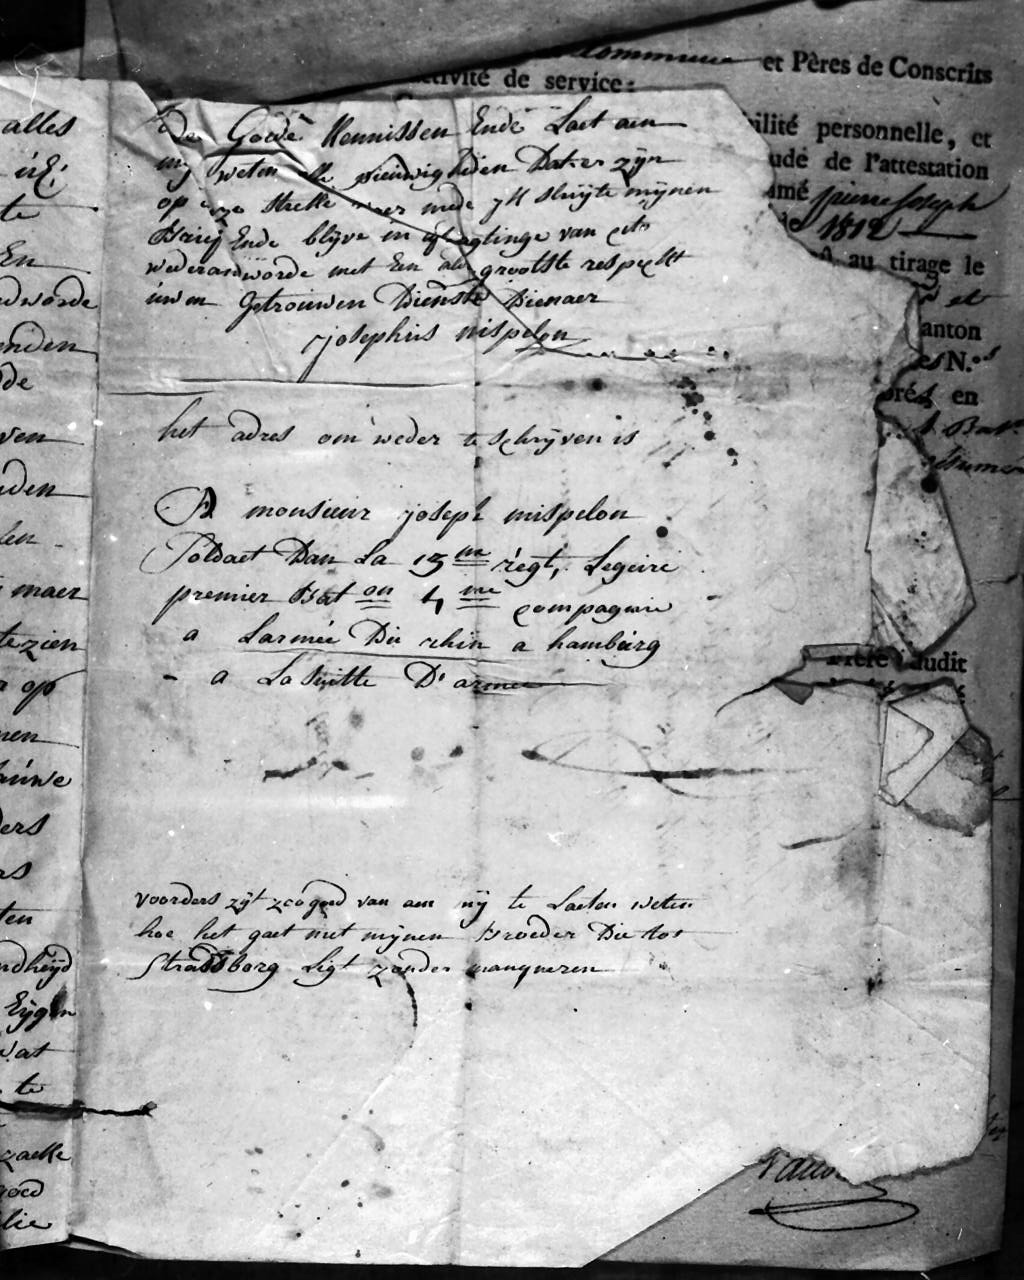 Commune et Pères de Conscrits
activité de service:
bilité personnelle, et
ude de l'attestation
mé pierre Joseph
1812
au tirage le
et
anton
es N.os
en
frère audit
alles
te
En
dworde
enden
de
ven
nden
len
maer
te zien
op
nen
auwe
ders
as
ten
ndheijd
Eijgen
wat
te
zaeke
goed
lie
De Goede Kennissen Ende Laet aen
mij weten alle nieuwigheden Dat er zijn
op streke mede ik sluijte mijnen
Brief Ende blijve in afwagtinge van ets
wederandworde met Een aldergrootste respeckt
uwen getrouwen Dienste Dienaer
josephus mispelon
het adres om weder te schrijven is
A monsieur joseph mispelon
Soldaet Dan La 15 me regt, Legeire
premier Bat on 4 me compagnie
a Larmée Du rhin a hamburg
- a La suitte D'armee
voorders zijt zoo goed van aen mij te Laeten weten
hoe het gaet met mijnen Broeder Die tot
Strasborg Ligt zonder manqueren